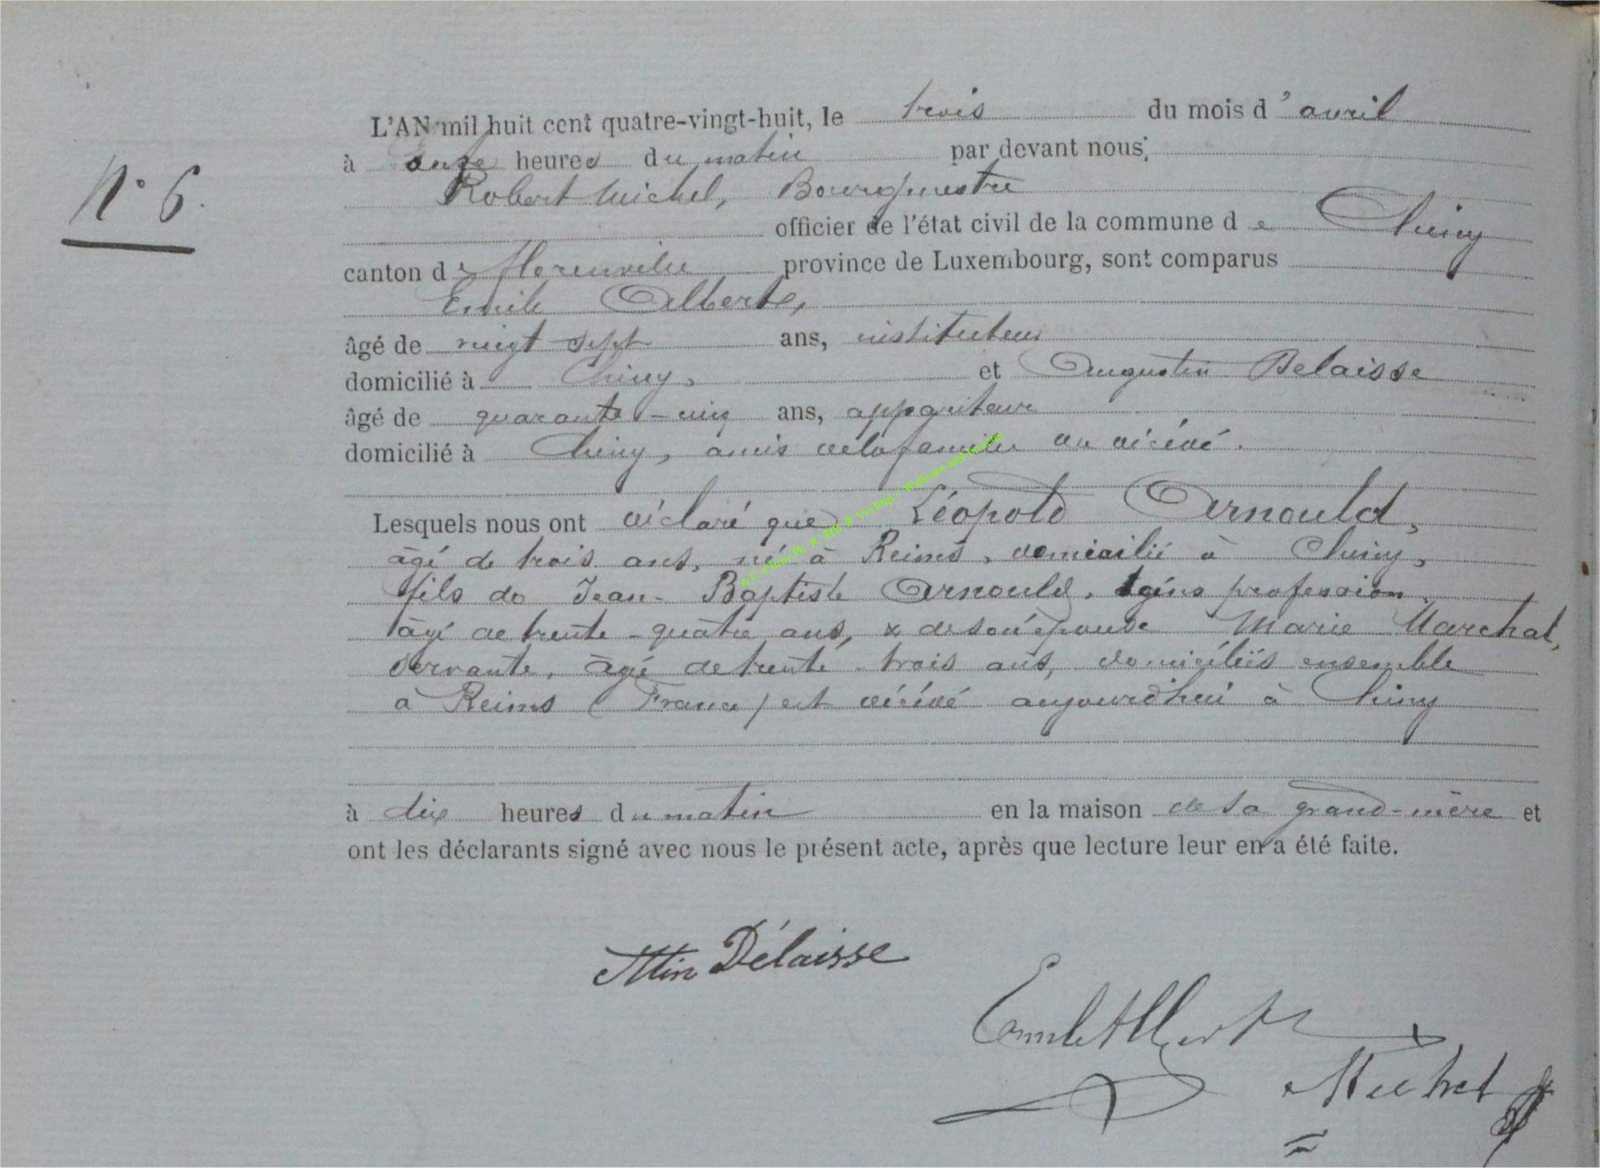 L'AN mil huit cent quatre-vingt-huit, le trois du mois d'avril
à onze heures du matin par devant nous,
N° 6.
Robert Michel, Bourgmestre
officier de l'état civil de la commune de Chiny
canton de Florenville province de Luxembourg, sont comparus
Emile Alberte,
âgé de vingt sept ans, instituteur
domicilié à Chiny, et Augustin Delaisse
âgé de quarante-cinq ans, appariteur
domicilié à Chiny, amis de la famille du décédé.
Lesquels nous ont déclaré que Léopold Arnould,
âgé de trois ans, né à Reims, domicilié à Chiny,
fils de Jean-Baptiste Arnould, sans profession,
âgé de trente-quatre ans, & de son épouse Marie Marchal,
servante, âgé de trente trois ans, domiciliés ensemble
à Reims (France) est décédé aujourd'hui à Chiny
à dix heures du matin en la maison de sa grand-mère et
ont les déclarants signé avec nous le présent acte, après que lecture leur en a été faite.
Atin Délaisse
Emile Albert
Michel